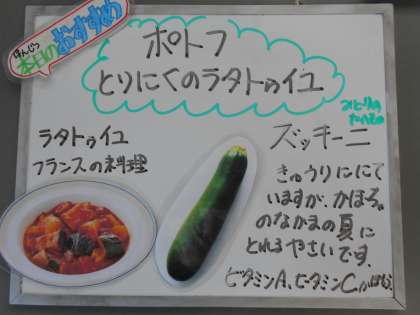 ほんじつ
本日のおすすめ
ポトフ
とりにくのラタトゥイユ
ラタトゥイユ
フランスの料理
ズッキーニ
きゅうりににて
いますが、かぼちゃ
のなかまの夏に
とれるやさいです。
ビタミンA、ビタミンC